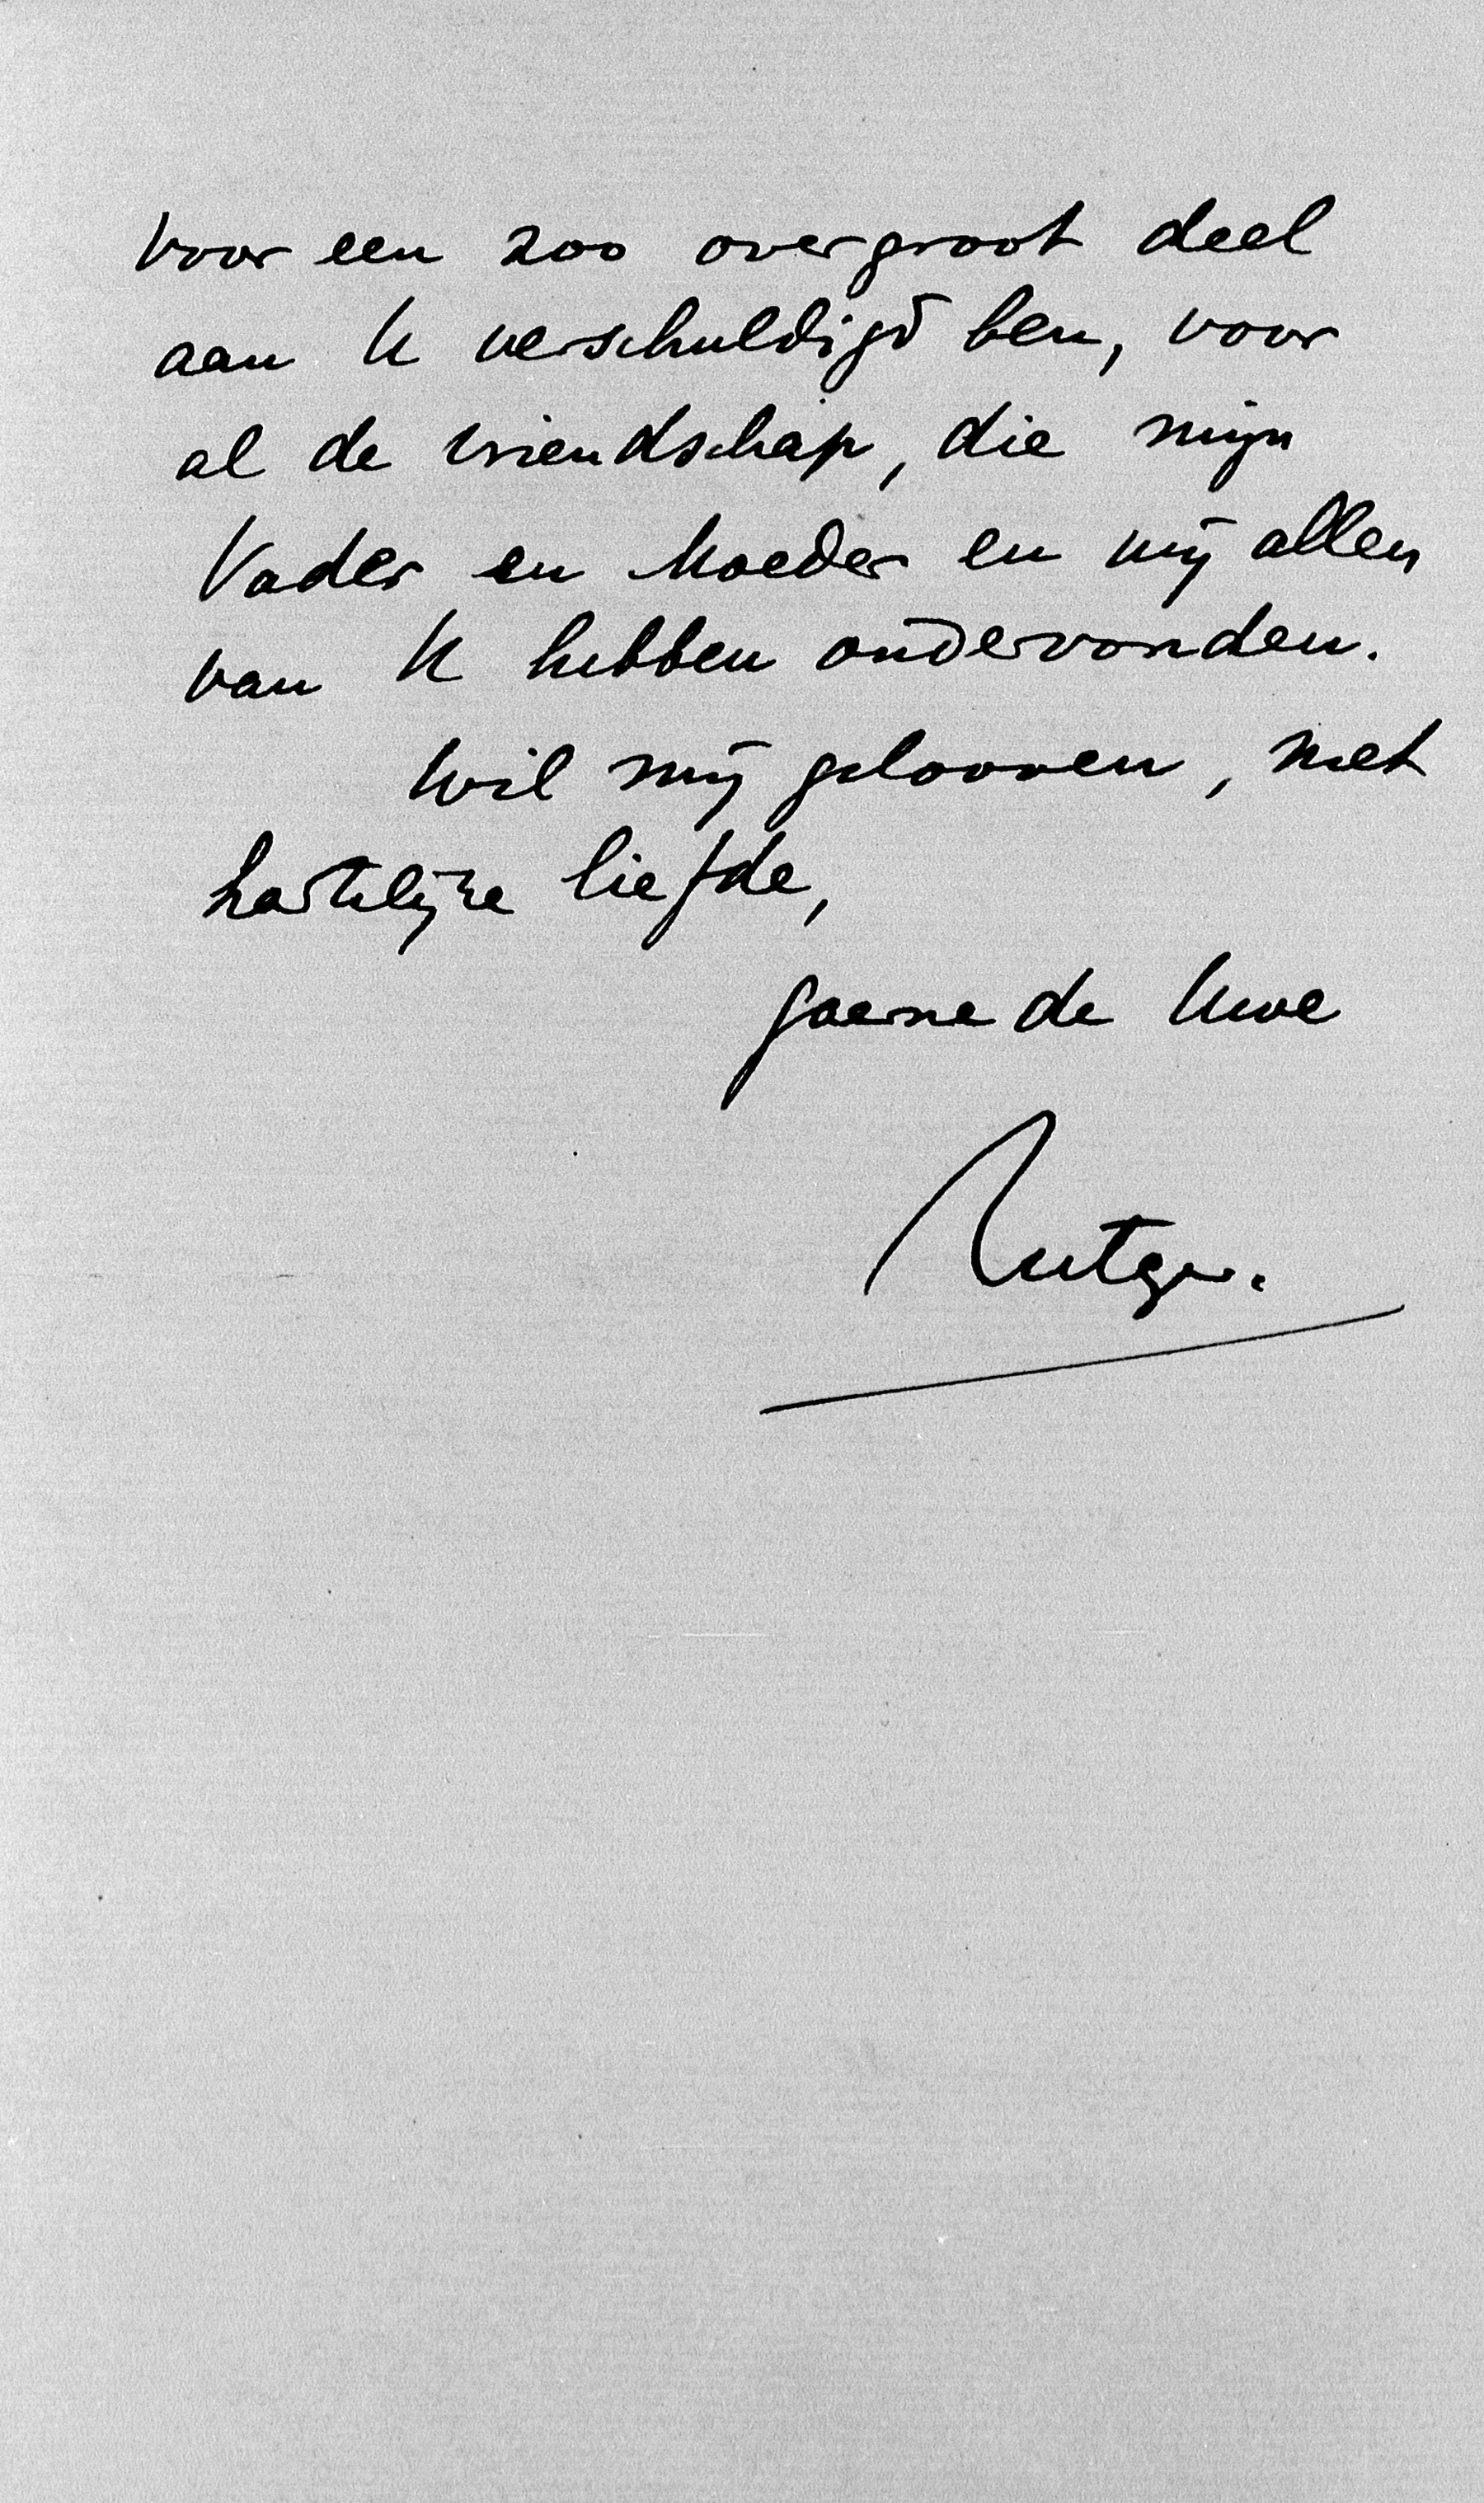 voor een zoo overgroot deel
aan U verschuldigd ben, voor
al de vriendschap, die mijn
Vader en Moeder en wij allen
van U hebben ondervonden.
Wil mij gelooven, met
hartelijke liefde,
gaerne de Uwe
Rutger.